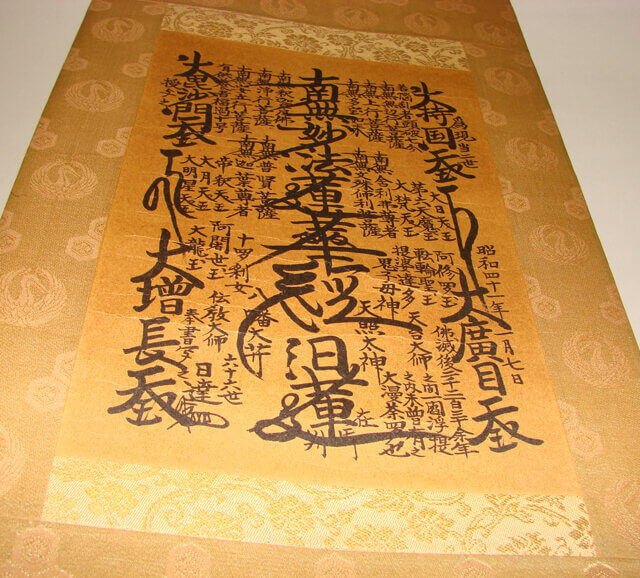 為現当二世
大持国天王
昭和四十一年一月七日
大廣目天王
若悩乱者頭破七分
南無無辺行菩薩
南無上行菩薩
南無多宝如来
大日天王
第六天魔王
大梵天王
南無舎利弗尊者
南無文殊師利菩薩
阿修羅王
転輪聖王
提婆達多
鬼子母神
佛滅後二千二百三十余年
之間一閻浮提
之内未曾有之
大漫荼羅也
天台大師
天照太神
南無妙法蓮華経
日蓮
在
南無釈迦牟尼佛
南無浄行菩薩
南無安立行菩薩
有供養者福過十号
南無普賢菩薩
南無迦葉尊者
帝釈天王
大月天王
大明星天王
十羅刹女
八幡大菩薩
阿闍世王
大龍王
伝教大師
六十六世
日達
奉書写之
大毘沙門天王
授与之
大増長天王